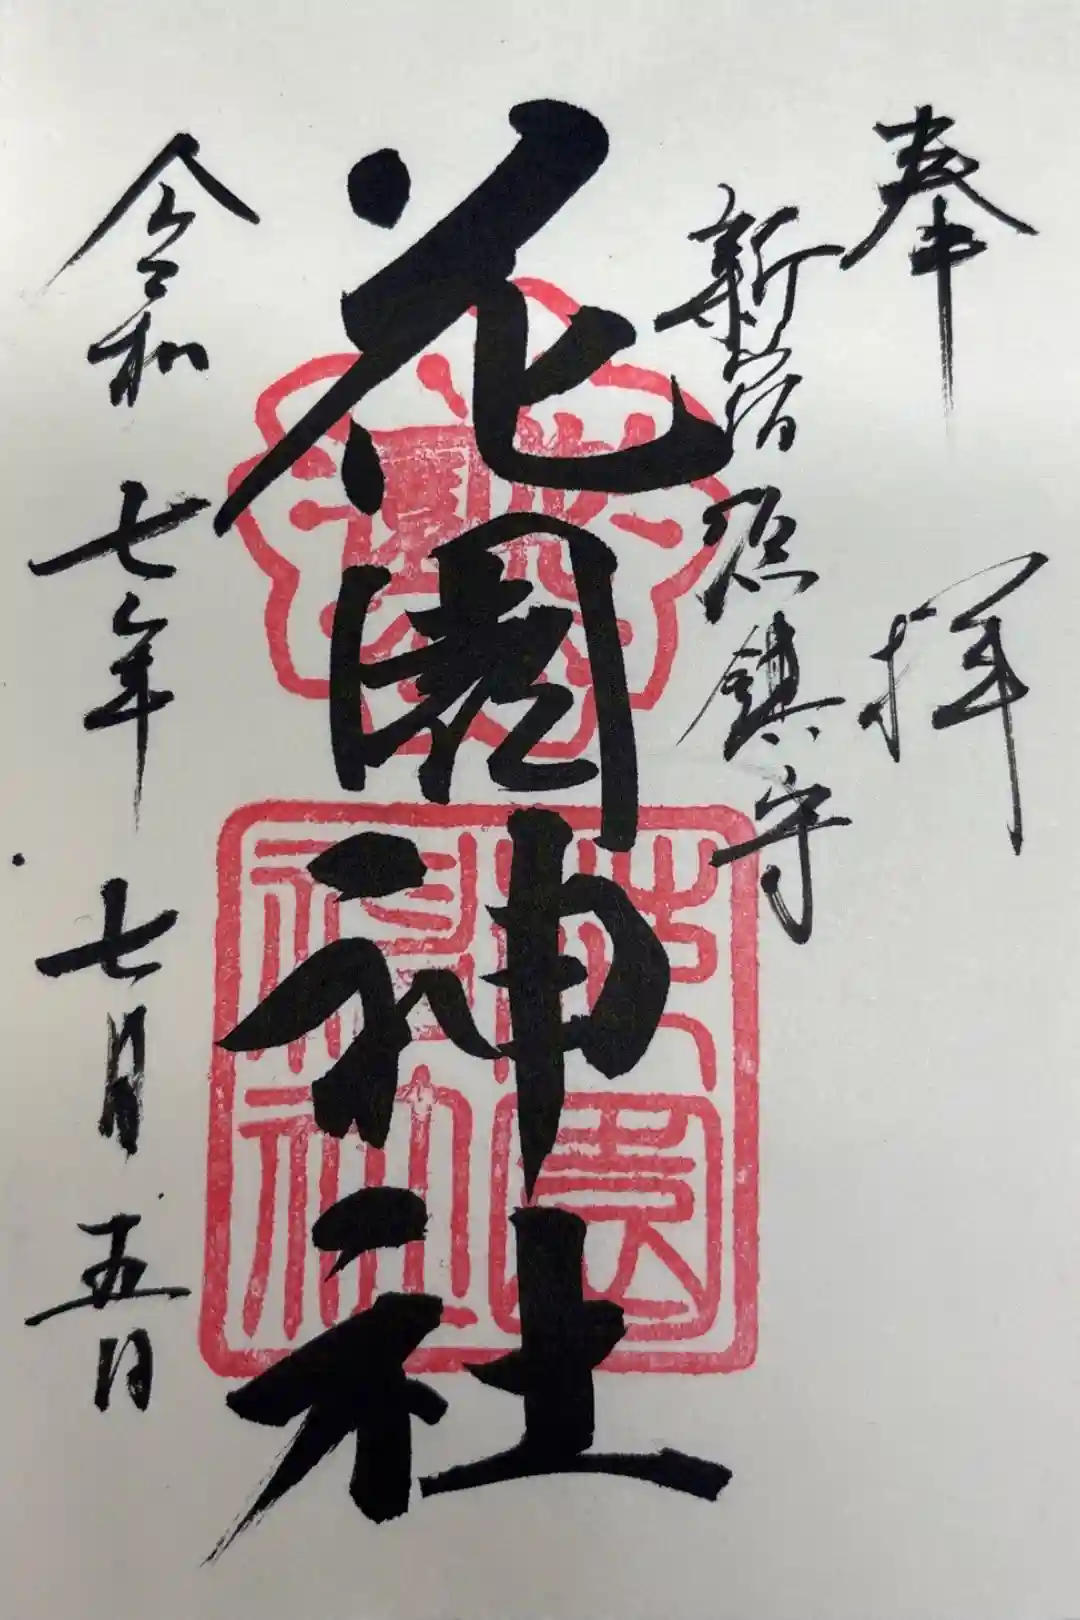 奉拝
新宿総鎮守
花園神社
令和七年七月五日
花園
花園神社